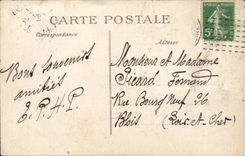 CARTE POSTALE
Correspondance
Adresse
Bons souvenirs
amitiés
Monsieur et Madame
Picard Fernand
Rue Bourg Neuf
Blois (Loir et Cher)